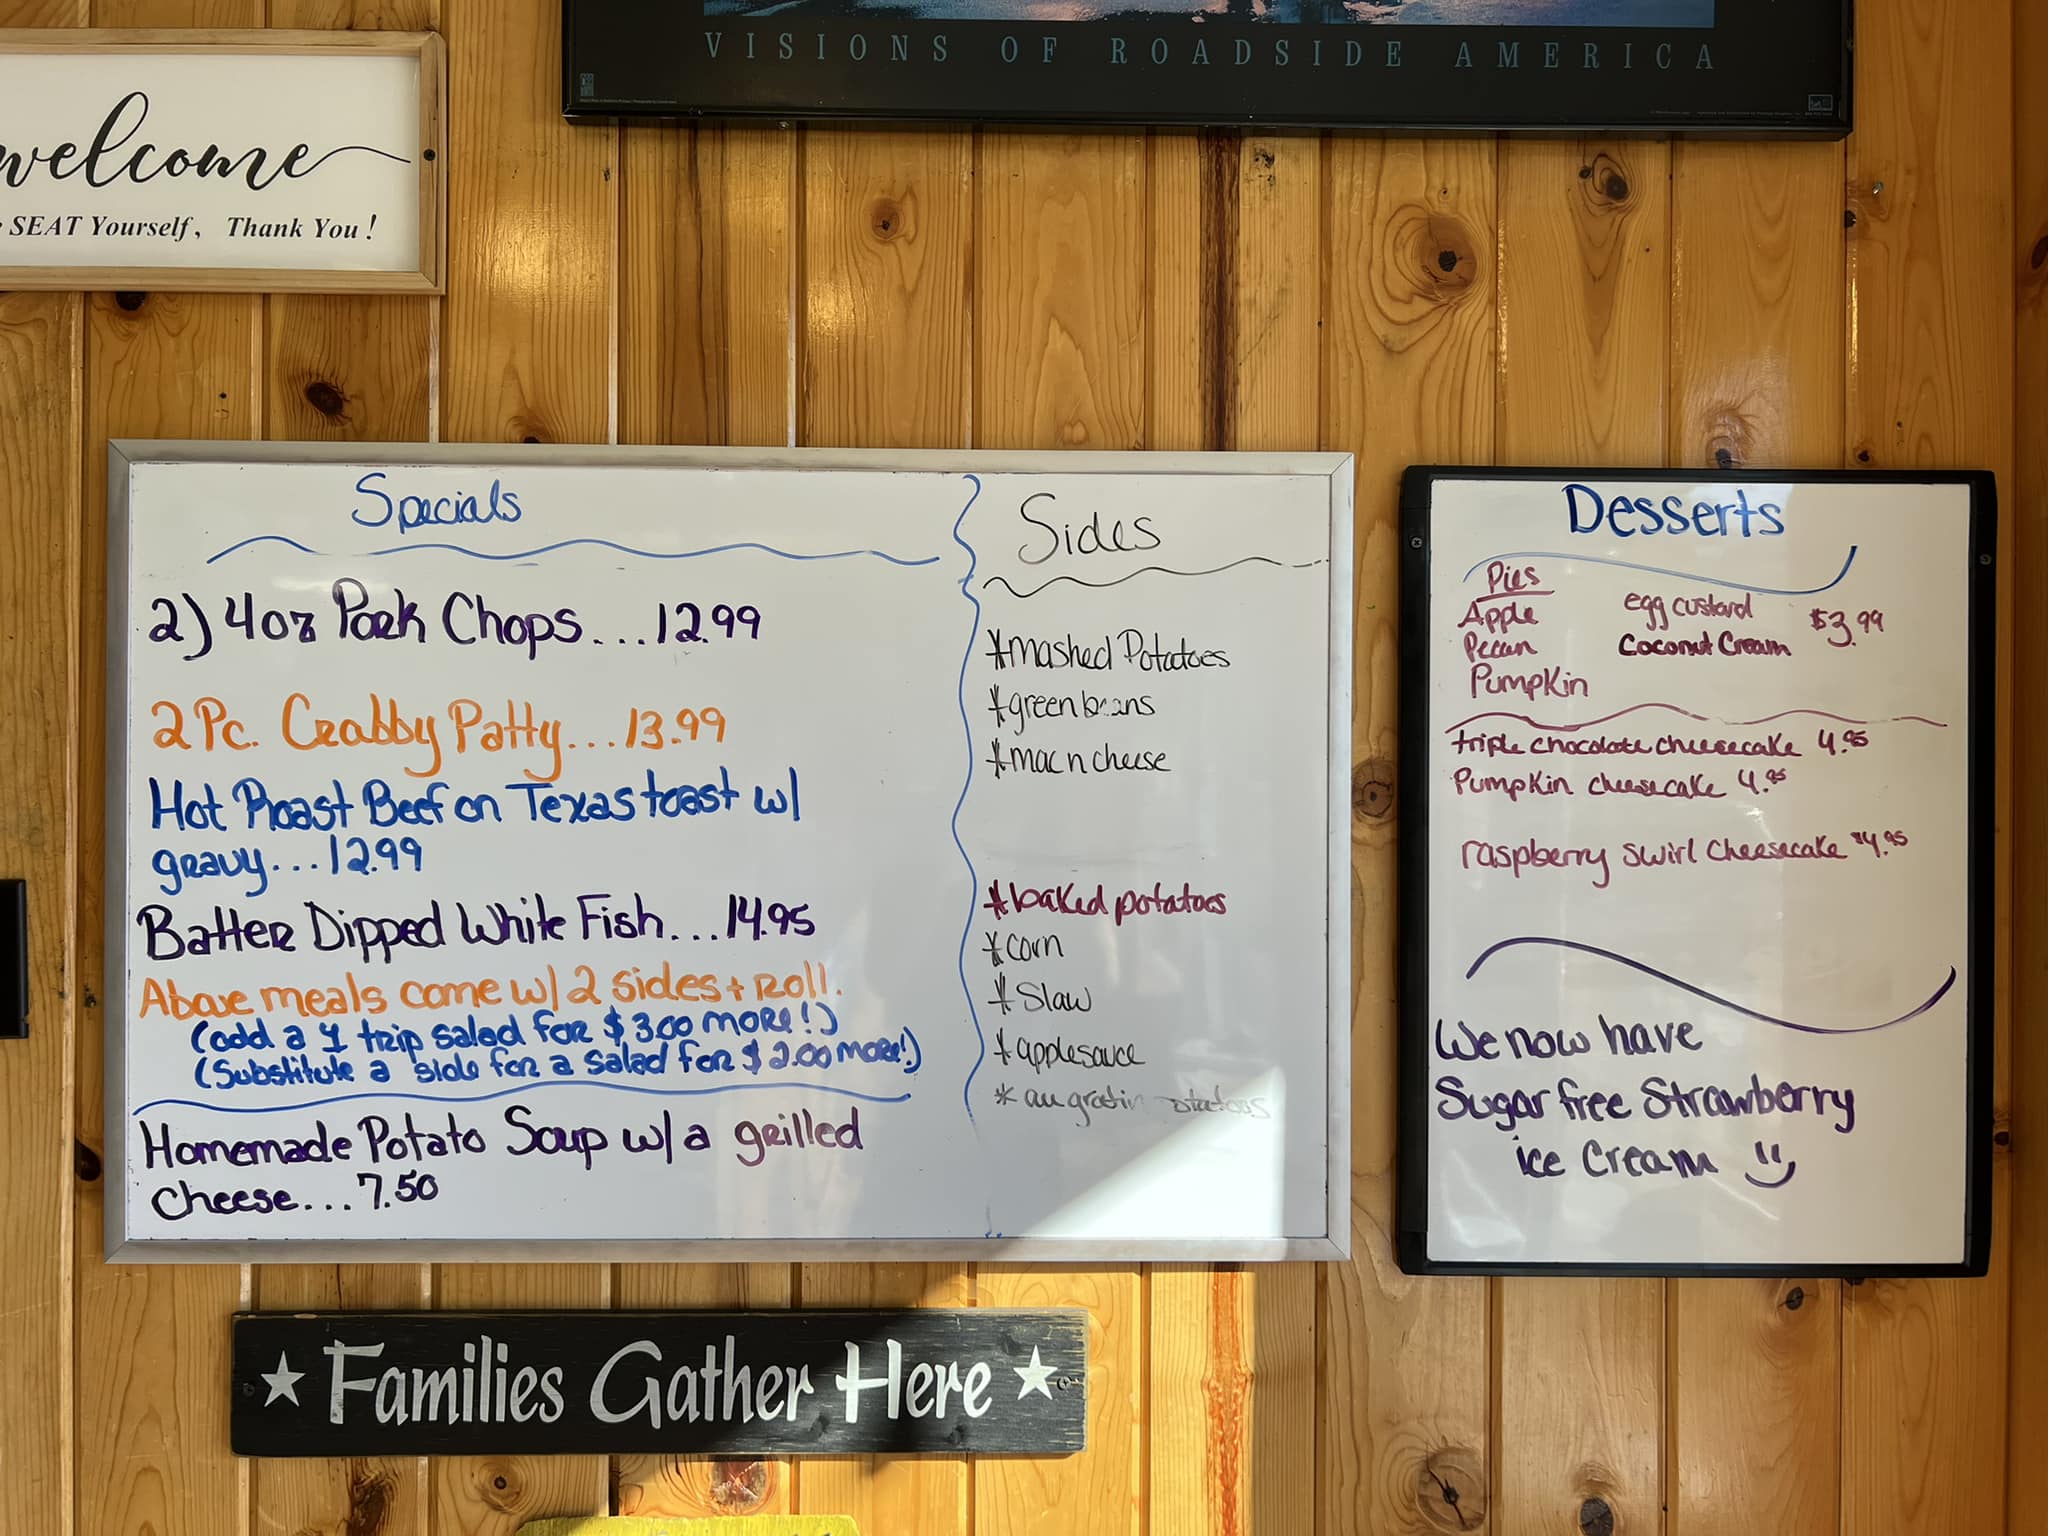 VISIONS OF ROADSIDE AMERICA
welcome
SEAT Yourself, Thank You!
Specials
2) 4oz Pork Chops...12.99
2 Pc. Crabby Patty...13.99
Hot Roast Beef on Texas toast w/
gravy...12.99
Batter Dipped White Fish...14.95
Above meals come w/ 2 sides + Roll.
(add a 1 trip salad for $3.00 more!)
(Substitute a side for a salad for $2.00 more!)
Homemade Potato Soup w/ a grilled
cheese...7.50
Sides
*mashed Potatoes
*green beans
*mac n cheese
*baked potatoes
*corn
*Slaw
*applesauce
*au gratin potatoes
Desserts
Pies
Apple egg custard $3.99
Pecan Coconut Cream
Pumpkin
triple chocolate cheesecake 4.95
Pumpkin cheesecake 4.95
raspberry swirl cheesecake $4.95
We now have
Sugar free Strawberry
ice Cream
Families Gather Here